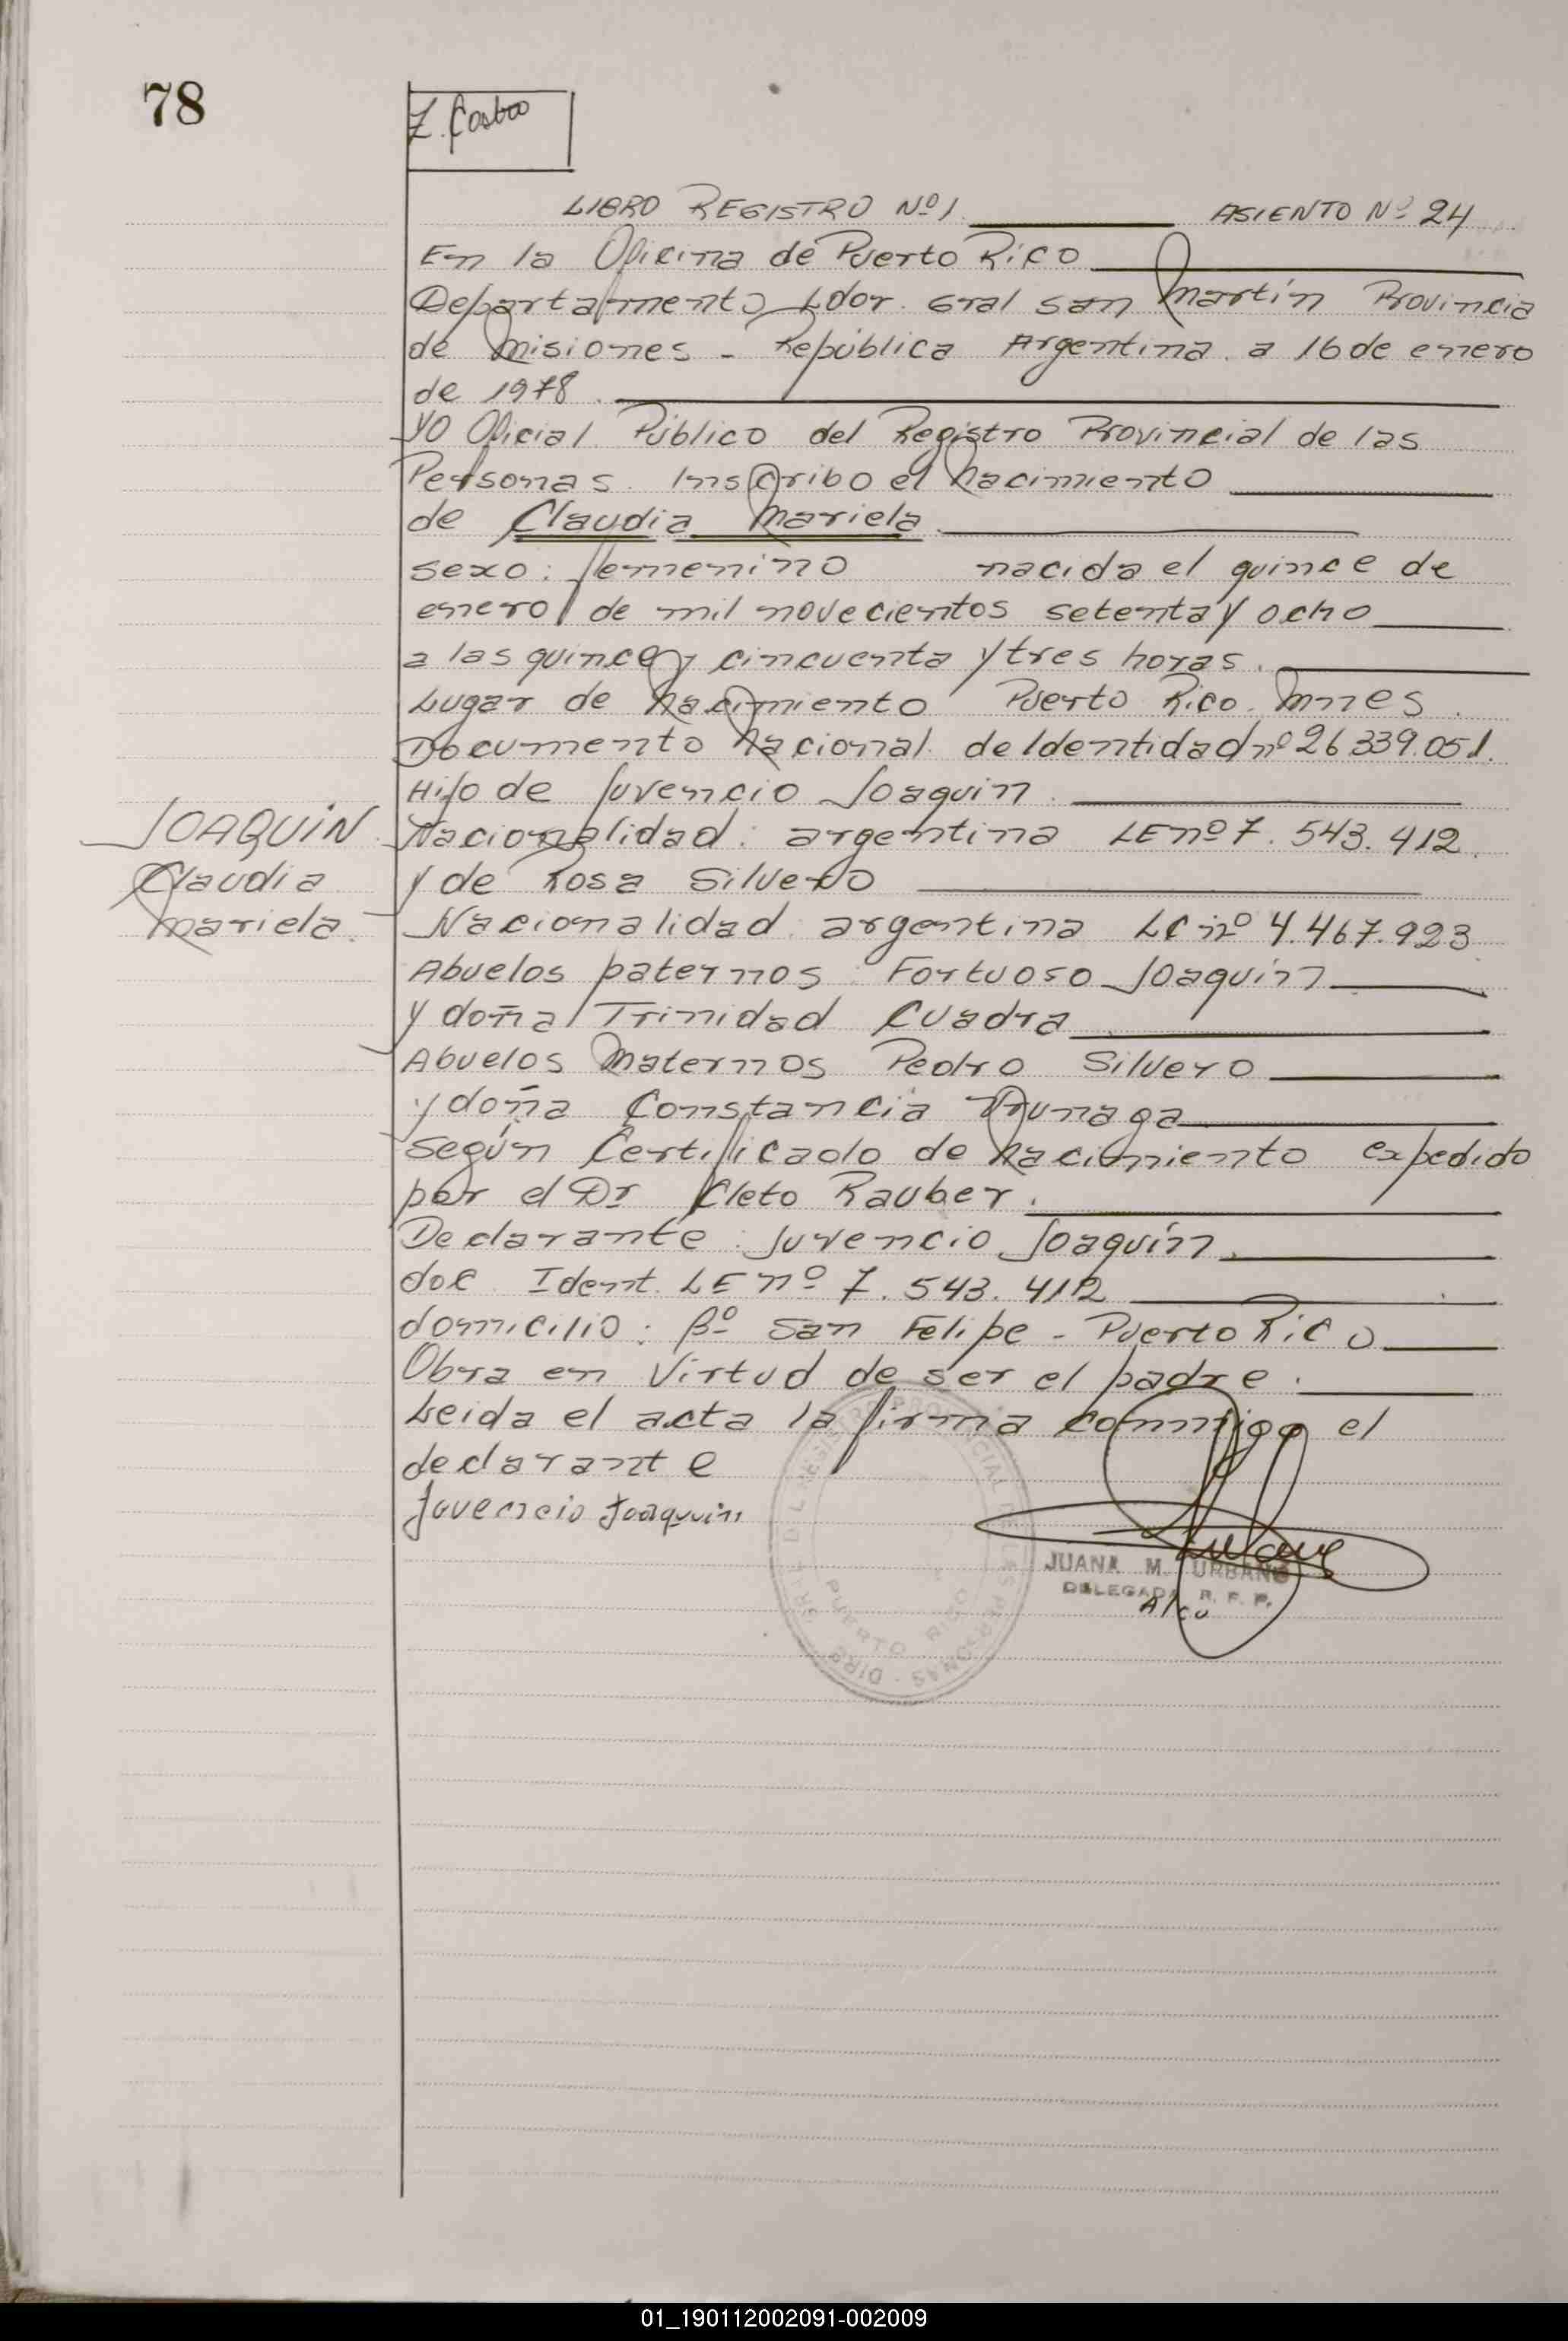 78
Z. Castro
LIBRO REGISTRO Nº 1. ASIENTO Nº 24
En la Oficina de Puerto Rico
Departamento Ldor. Gral San Martín Provincia
de Misiones - República Argentina. a 16 de enero
de 1978.
Yo Oficial Público del Registro Provincial de las
Personas. Inscribo el Nacimiento
de Claudia Mariela
sexo: femenino nacida el quince de
enero de mil novecientos setenta y ocho
a las quince y cincuenta y tres horas.
Lugar de Nacimiento Puerto Rico. Mnes.
Documento Nacional de Identidad nº 26 339.051.
Hijo de Juvencio Joaquin.
Nacionalidad: argentina LE nº 7.543.412.
y de Rosa Silvero
Nacionalidad: argentina LC nº 4.467.923
JOAQUIN
Claudia
Mariela.
Abuelos paternos: Fortuoso Joaquin
y doña Trinidad Cuadra
Abuelos Maternos Pedro Silvero
y doña Constancia
Según Certificado de Nacimiento expedido
por el Dr Cleto Rauber.
Declarante: Juvencio Joaquín.
doc. Ident. LE nº 7.543.412
domicilio: Bº San Felipe - Puerto Rico
Obra en Virtud de ser el padre.
Leida el acta la firma conmigo el
declarante
Juvencio Joaquin
JUANA M. URBANO
DELEGADA R. P. P.
DIRE DEL REGISTRO PROVINCIAL DE LAS PERSONAS - DIRG
PUERTO RICO
01_190112002091-002009